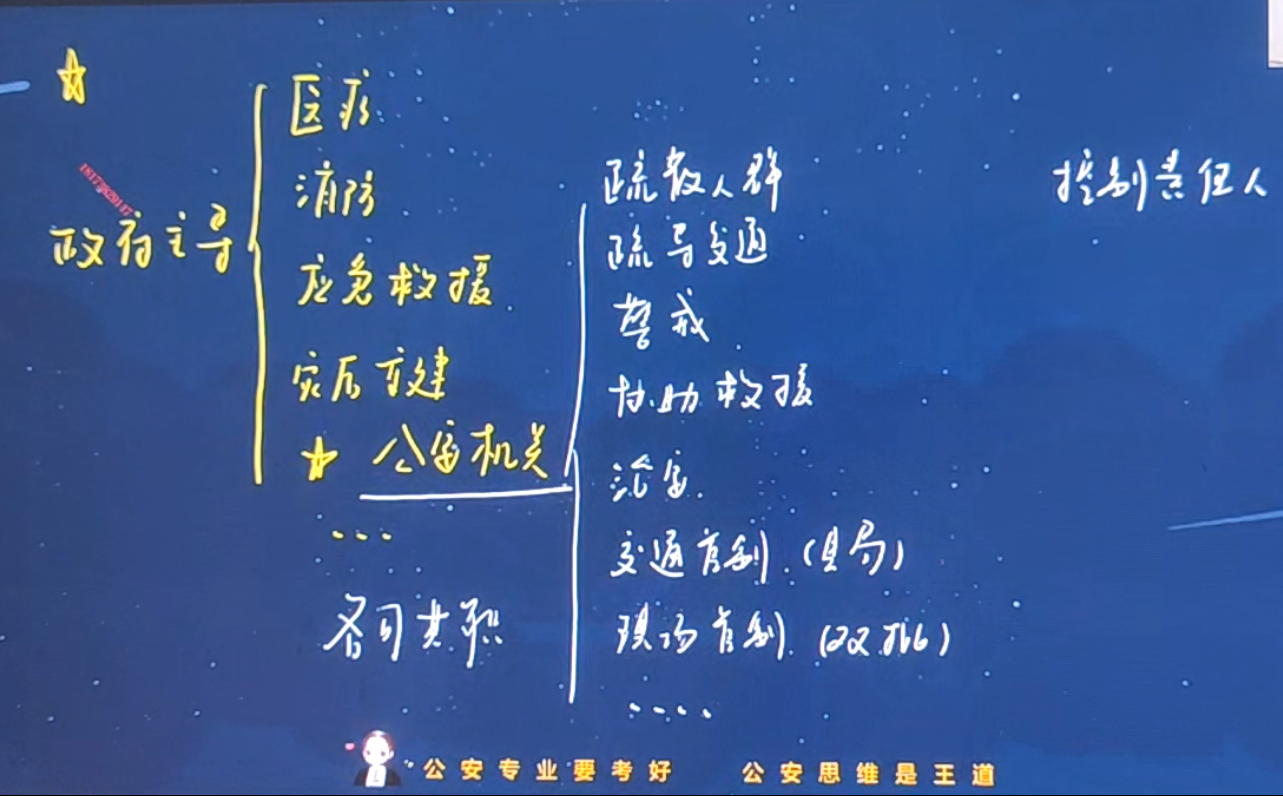 政府主导
医疗
消防
应急救援
灾后重建
公安机关
...
各司其职
疏散人群
疏导交通
警戒
协助救援
治安
交通管制（县局）
现场管制（双批）
....
控制责任人
公安专业要考好 公安思维是王道